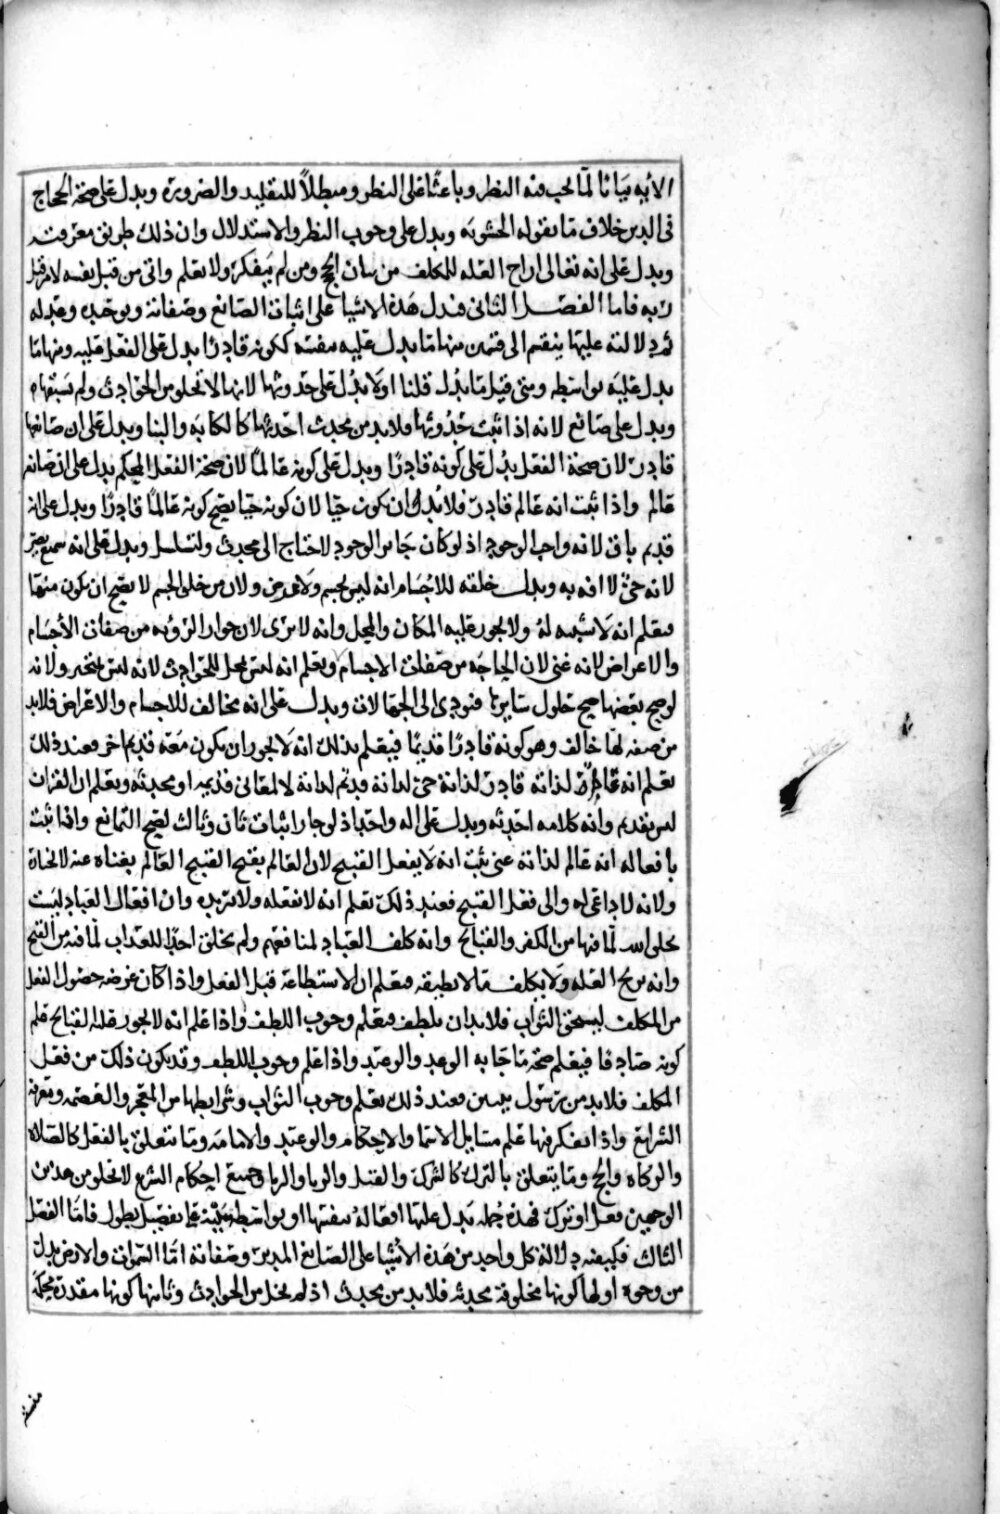 الآية بيانا لما يجب فيه النظر وباعثا على النظر ومبطلا للتقليد والضرورة ويدل على صحة الحجاج
في الدين خلاف ما يقوله الحشوية ويدل على وجوب النظر والاستدلال وان ذلك طريق معرفته
ويدل على انه تعالى ازاح العلة للمكلف من بيان الحجج ومن لم يتفكر ولا يعلم واتى من قبل نفسه لا من قبل
ربه فاما الفصل الثاني فتدل هذه الاشيا على اثبات الصانع وصفاته وتوحيده وعدله
ثم دلالته عليها ينقسم الى قسمين منها ما يدل عليه بنفسه ككونه قادرا يدل على الفعل عليه ومنها ما
يدل عليه بواسطة ومتى قيل ما يدل قلنا اولا يدل على حدوثها لانها لا تخلو من الحوادث ولم تسبقها
ويدل على صانع لانه اذا ثبت حدوثها فلا بد من محدث احدثها كالكتابة والبنا ويدل على ان صانعها
قادر لان صحة الفعل يدل على كونه قادرا ويدل على كونه عالما لان صحة الفعل المحكم يدل على ان صانعه
عالم واذا ثبت انه عالم قادر فلا بد ان يكون حيا لان كونه حيا يصح كونه عالما قادرا ويدل على انه
قديم باق لانه واجب الوجود اذ لو كان جايز الوجود لاحتاج الى محدث ولتسلسل ويدل على انه سميع بصير
لانه حي لا افة به ويدل خلقه للاجسام انه ليس بجسم ولا عرض ولان من خلق الجسم لا يصح ان يكون منهما
فيعلم انه لا شبيه له ولا يجوز عليه المكان والمحل وانه لا يرى لان جواز الرؤية من صفات الاجسام
والاعراض لانه غني لان الحاجة من صفات الاجسام ويعلم انه ليس بمحل للحوادث لانه ليس بمتحيز ولانه
لو صح بعضها صح حلول سايرها فتودي الى الجهالات ويدل على انه مخالف للاجسام والاعراض فلا بد
من صفة لها خالف وهو كونه قادرا قديما فيعلم بذلك انه لا يجوز ان يكون معه قديم اخر فعند ذلك
يعلم انه عالم لذاته قادر لذاته حي لذاته قديم لذاته لا لمعاني قديمة او محدثة ويعلم ان القران
ليس بقديم وانه كلامه احدثه ويدل على اله واحد اذ لو جاز اثبات ثان وثالث لصح التمانع واذا ثبت
بافعاله انه عالم لذاته غني ثبت انه لا يفعل القبيح لان العالم بقبح القبيح العالم بغناه عنه لا يختاره
ولانه لا داعي له الى فعل القبيح فعند ذلك تعلم انه لا يفعله ولا يريده وان افعال العباد ليست
بخلق الله لما فيها من الكفر والقبائح وانه كلف العباد لمنافعهم ولم يخلق احدا للعذاب لما فيه من القبح
وانه يزيح العلة ولا يكلف ما لا يطيقه فيعلم ان الاستطاعة قبل الفعل واذا كان غرضه حصول الفعل
من المكلف ليستحق الثواب فلا بد ان يلطف فيعلم وجوب اللطف واذا علم انه لا يجوز فعل القبايح علم
كونه صادقا فيعلم صحة ما جا به الوعد والوعيد واذا علم وجوب اللطف وقد يكون ذلك من فعل
المكلف فلا بد من رسول يبين فعند ذلك يعلم وجوب الثواب وشرايطها من المعجز والعصمة ومعرفة
الشرايع واذا تفكر فيها علم مسايل الاسما والاحكام والوعيد والامامة وما يتعلق بالفعل كالصلاة
والزكاة والحج وما يتعلق بالترك كالشرك والقتل والزنا والربا وجميع احكام الشرع لا تخلو من هذين
الوجهين فعل او ترك فهذه جملة يدل عليها افعاله بنفسها او بواسطة على تفصيل يطول فاما الفصل
الثالث فكيفية دلالة كل واحد من هذه الاشيا على الصانع المدبر وصفاته اما السموات والارض يدل
من وجوه اولها كونها مخلوقة محدثة فلا بد من محدث اذ لم يخل من الحوادث وثانيها كونها مقدرة محكمة